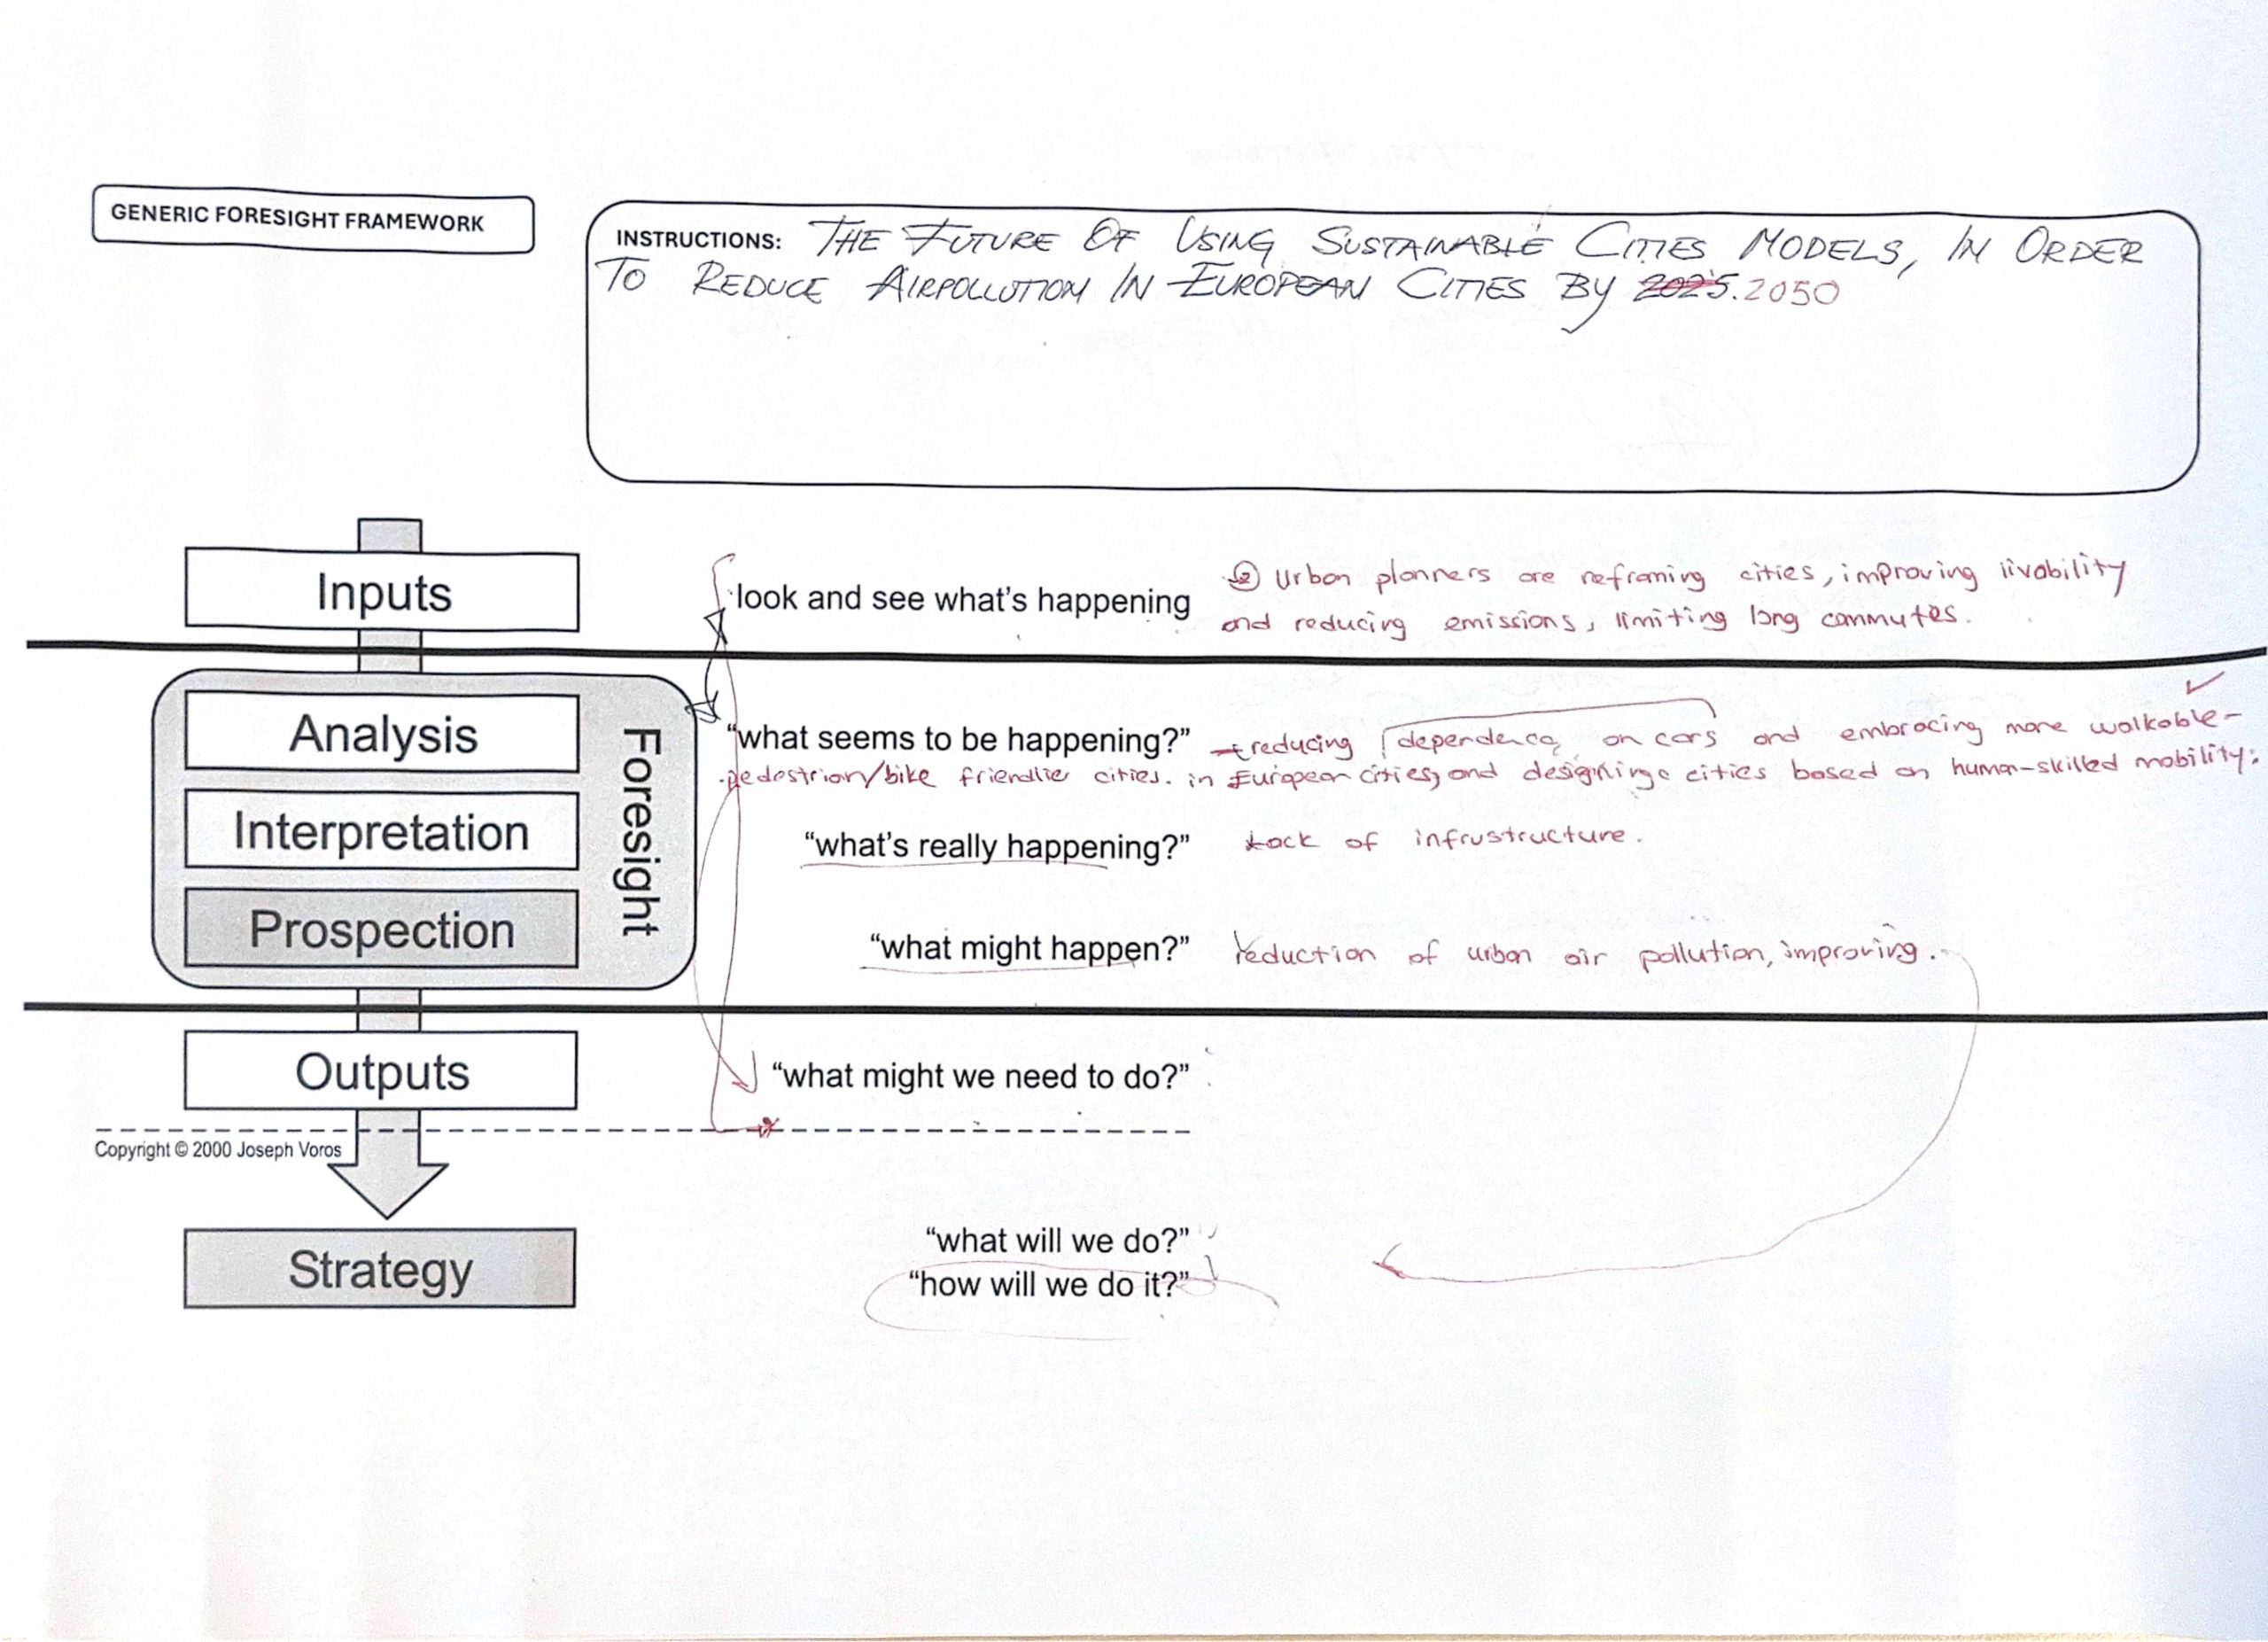 GENERIC FORESIGHT FRAMEWORK
INSTRUCTIONS: THE FUTURE OF USING SUSTAINABLE CITIES MODELS, IN ORDER
TO REDUCE AIRPOLLUTION IN EUROPEAN CITIES BY 2025. 2050
Inputs
look and see what's happening
② Urban planners are reframing cities, improving livability
and reducing emissions, limiting long commutes.
Foresight
Analysis
"what seems to be happening?" reducing dependence on cars and embracing more walkable-
pedestrian/bike friendlie cities. in European cities, and designing cities based on human-skilled mobility.
Interpretation
"what's really happening?" Lack of infrustructure.
Prospection
"what might happen?" reduction of urban air pollution, improving.
Outputs
"what might we need to do?"
Copyright © 2000 Joseph Voros
Strategy
"what will we do?"
"how will we do it?"